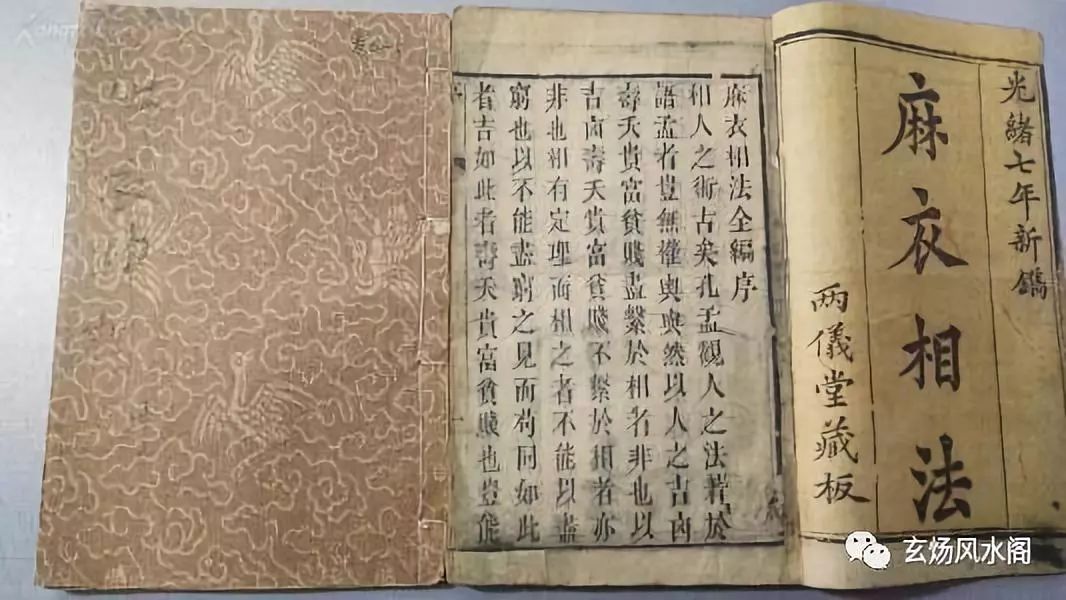 光緒七年新鐫
麻衣相法
两儀堂藏板
麻衣相法全編序
相人之術古矣孔孟觀人之法著於
語孟者豈無權輿與然以人之吉凶
壽夭貴富貧賤盡繫於相者非也以
吉凶壽夭貴富貧賤不繫於相者亦
非也相有定理而相之者不能以盡
窮也以不能盡窮之見而苟同如此
者吉如此者壽夭貴富貧賤也豈能
玄炀风水阁